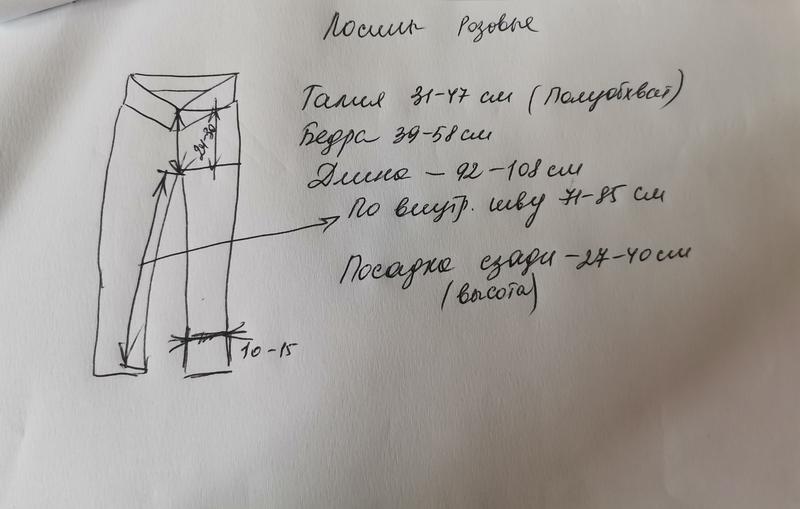 Лосины розовые
Талия 31-47 см (Полуобхват)
Бедра 39-58 см
Длина - 92-108 см
По внутр. шву 71-85 см
Посадка сзади - 27-40 см
(высота)
24-30
10-15